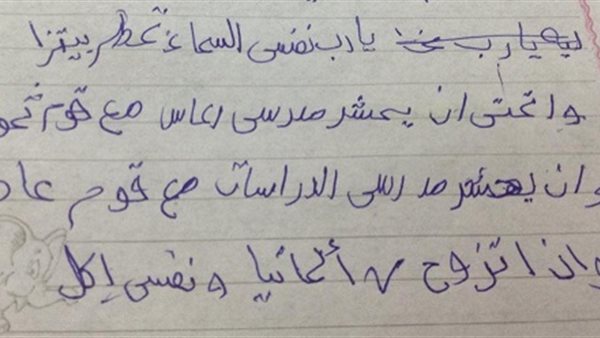 يارب نفسى السماء تمطر بيتزا
واتمنى ان يحشر مدرسى مع قوم ثمو
وان يحشر مدرسى الدراسات مع قوم عاد
وان اتزوج من ألمانيا ونفسى اكل